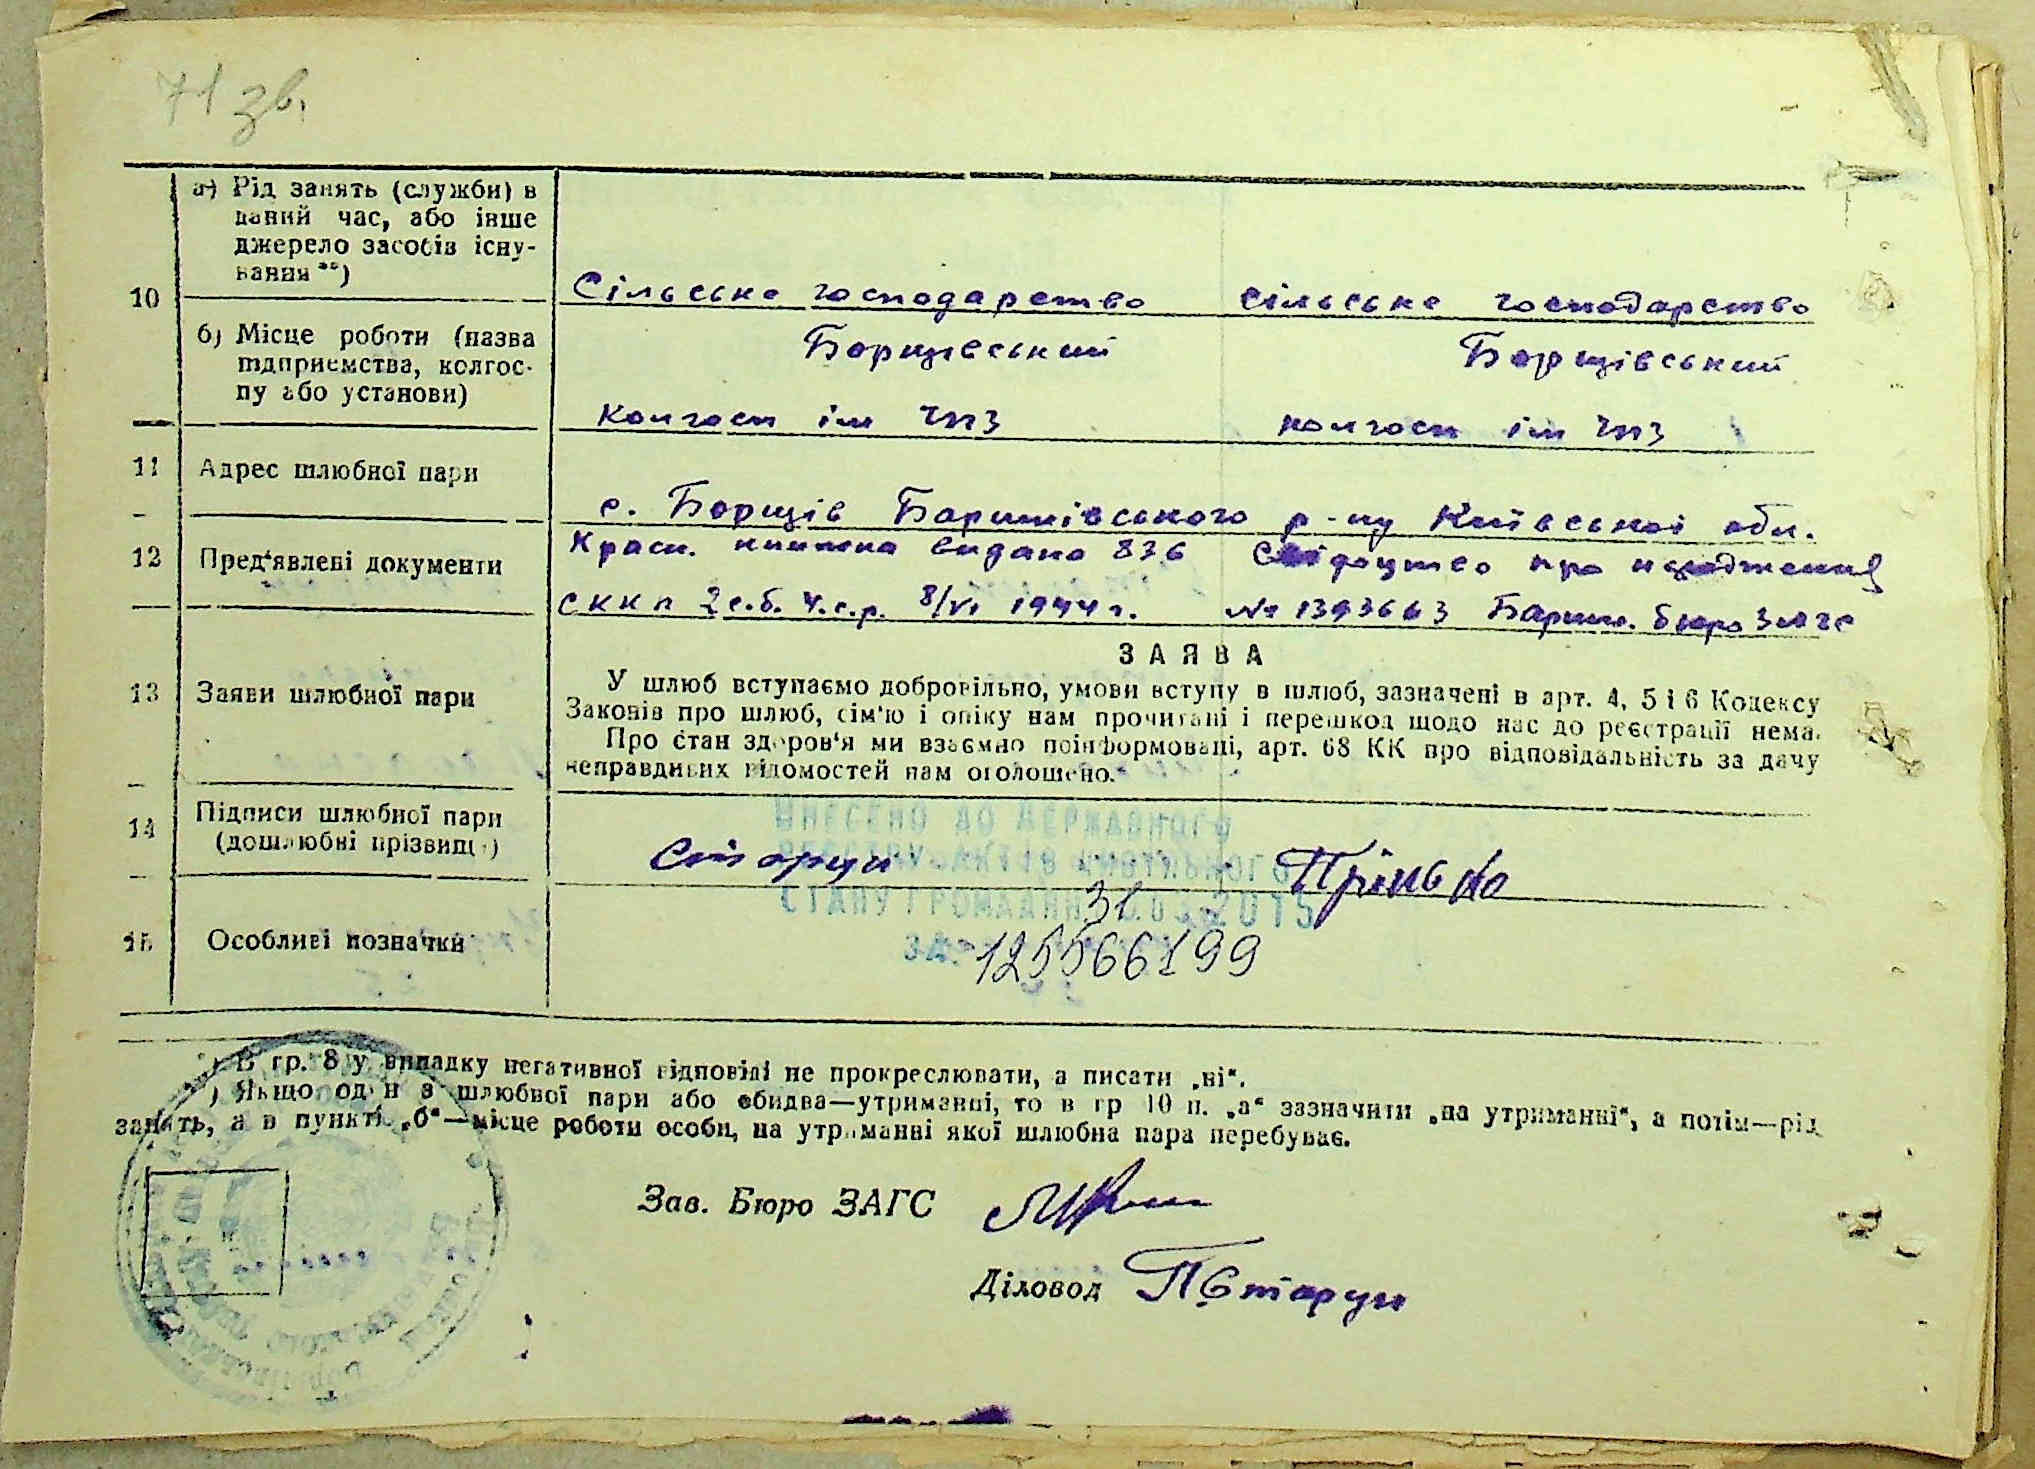 71 зв.
а) Рід занять (служби) в
даний час, або інше
джерело засобів існу-
вання **)
10
Сільське господарство сільське господарство
б) Місце роботи (назва
підприємства, колгос-
пу або установи)
Борщівський Борщівський
Колгосп ім ЧПЗ колгосп ім ЧПЗ
11 Адрес шлюбної пари
с. Борщів Баришівського р-ну Київської обл.
12 Пред'явлені документи
Красн. книжка видана 836 Свідоцтво про народження
СККП 2 с.б. Ч.с.р. 8/VI 1944 г. № 1393663 Бариш. бюро Загс
13 Заяви шлюбної пари
ЗАЯВА
У шлюб вступаємо добровільно, умови вступу в шлюб, зазначені в арт. 4, 5 і 6 Кодексу
Законів про шлюб, сім'ю і опіку нам прочитані і перешкод щодо нас до реєстрації нема.
Про стан здоров'я ми взаємно поінформовані, арт. 68 КК про відповідальність за дачу
неправдивих відомостей нам оголошено.
14 Підписи шлюбної пари
(дошлюбні прізвища)
ВНЕСЕНО ДО ДЕРЖАВНОГО
РЕЄСТРУ АКТІВ ЦИВІЛЬНОГО
СТАНУ ГРОМАДЯН 31.03.2015
ЗА 125566199
Старун
15 Особливі позначки
*) В гр. 8 у випадку негативної відповіді не прокреслювати, а писати „ні“.
**) Якщо один з шлюбної пари або обидва—утриманці, то в гр 10 п. „а“ зазначити „на утриманні“, а потім—рід
занять, а в пункті „б“—місце роботи особи, на утриманні якої шлюбна пара перебуває.
Зав. Бюро ЗАГС
Діловод ПСтарун